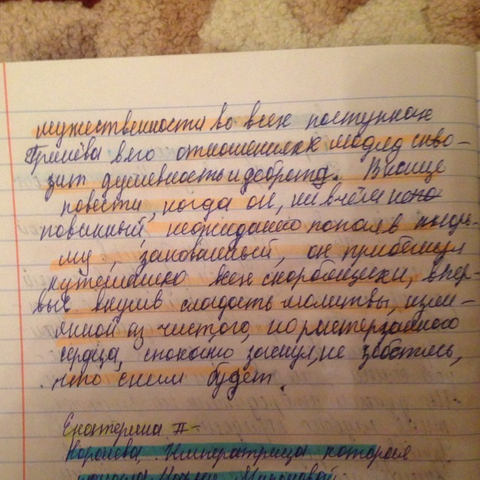 мужественности во всех поступках
Гринёва в его отношениях к людям скво-
зит душевность и доброта. В конце
повести, когда он, ни в чём непо
повинный, неожиданно попал в тюрь-
му, закованный, он прибегнул
к утешению всех скорбящих и, впер-
вые вкусив сладость молитвы, излит-
янной из чистого, но растерзанного
сердца, спокойно заснул, не заботясь,
что с ним будет.
Екатерина II -
Королева. Императрица которая
помогла Маше Мироновой